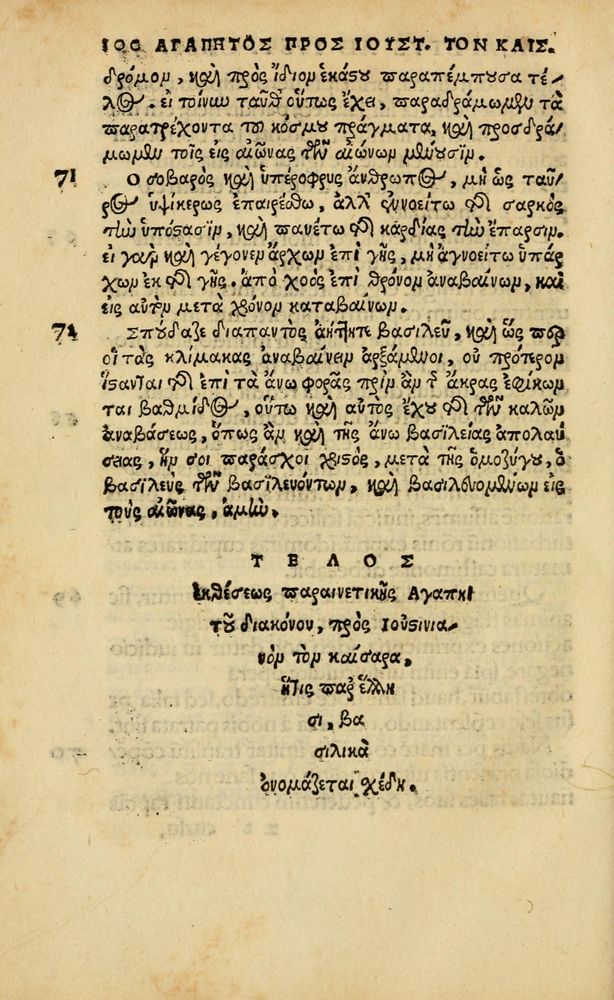 100 ΑΓΑΠΗΤΟΣ ΠΡΟΣ ΙΟΥΣΤ. ΤΟΝ ΚΑΙΣ.
δρόμον, καὶ πρὸς ἴδιον ἑκάστου παραπέμπουσα τέ-
λος. εἰ τοίνυν ταῦθ' οὕτως ἔχει, παραδράμωμεν τὰ
παρατρέχοντα τοῦ κόσμου πράγματα, καὶ προσδρά-
μωμεν τοῖς εἰς αἰῶνας τῶν αἰώνων μένουσιν.
71 Ο σοβαρὸς καὶ ὑπέροφρυς ἄνθρωπος, μὴ ὡς ταῦ-
ρος ὑψίκερως ἐπαιρέσθω, ἀλλ' ἐννοείτω τῆς σαρκὸς
τὴν ὑπόστασιν, καὶ παυέτω τῆς καρδίας τὴν ἔπαρσιν.
εἰ γὰρ καὶ γέγονεν ἄρχων ἐπὶ γῆς, μὴ ἀγνοείτω ὑπάρ-
χων ἐκ τῆς γῆς. ἀπὸ χοὸς ἐπὶ θρόνον ἀναβαίνων, καὶ
εἰς αὐτὸν μετὰ χρόνον καταβαίνων.
72 Σπούδαζε διαπαντὸς ἀήττητε βασιλεῦ, καὶ ὥσπερ
οἱ τὰς κλίμακας ἀναβαίνειν ἀρξάμενοι, οὐ πρότερον
ἵστανται τῆς ἐπὶ τὰ ἄνω φορᾶς πρὶν ἂν τῆς ἄκρας ἐφίκων
ται βαθμίδος, οὕτω καὶ αὐτὸς ἔχου τῆς τῶν καλῶν
ἀναβάσεως, ὅπως ἂν καὶ τῆς ἄνω βασιλείας ἀπολαύ
σειας, ἥν σοι παράσχοι χριστὸς, μετὰ τῆς ὁμοζύγου, ὁ
βασιλεὺς τῶν βασιλευόντων, καὶ βασιλευομένων εἰς
τοὺς αἰῶνας, ἀμήν.
ΤΕΛΟΣ
ἐκθέσεως παραινετικῆς Αγαπη
τοῦ διακόνου, πρὸς Ιουστινια-
νὸν τὸν καίσαρα,
ἥτις παρ' ἕλλη
σι, βα
σιλικὰ
ὀνομάζεται σχέδη.